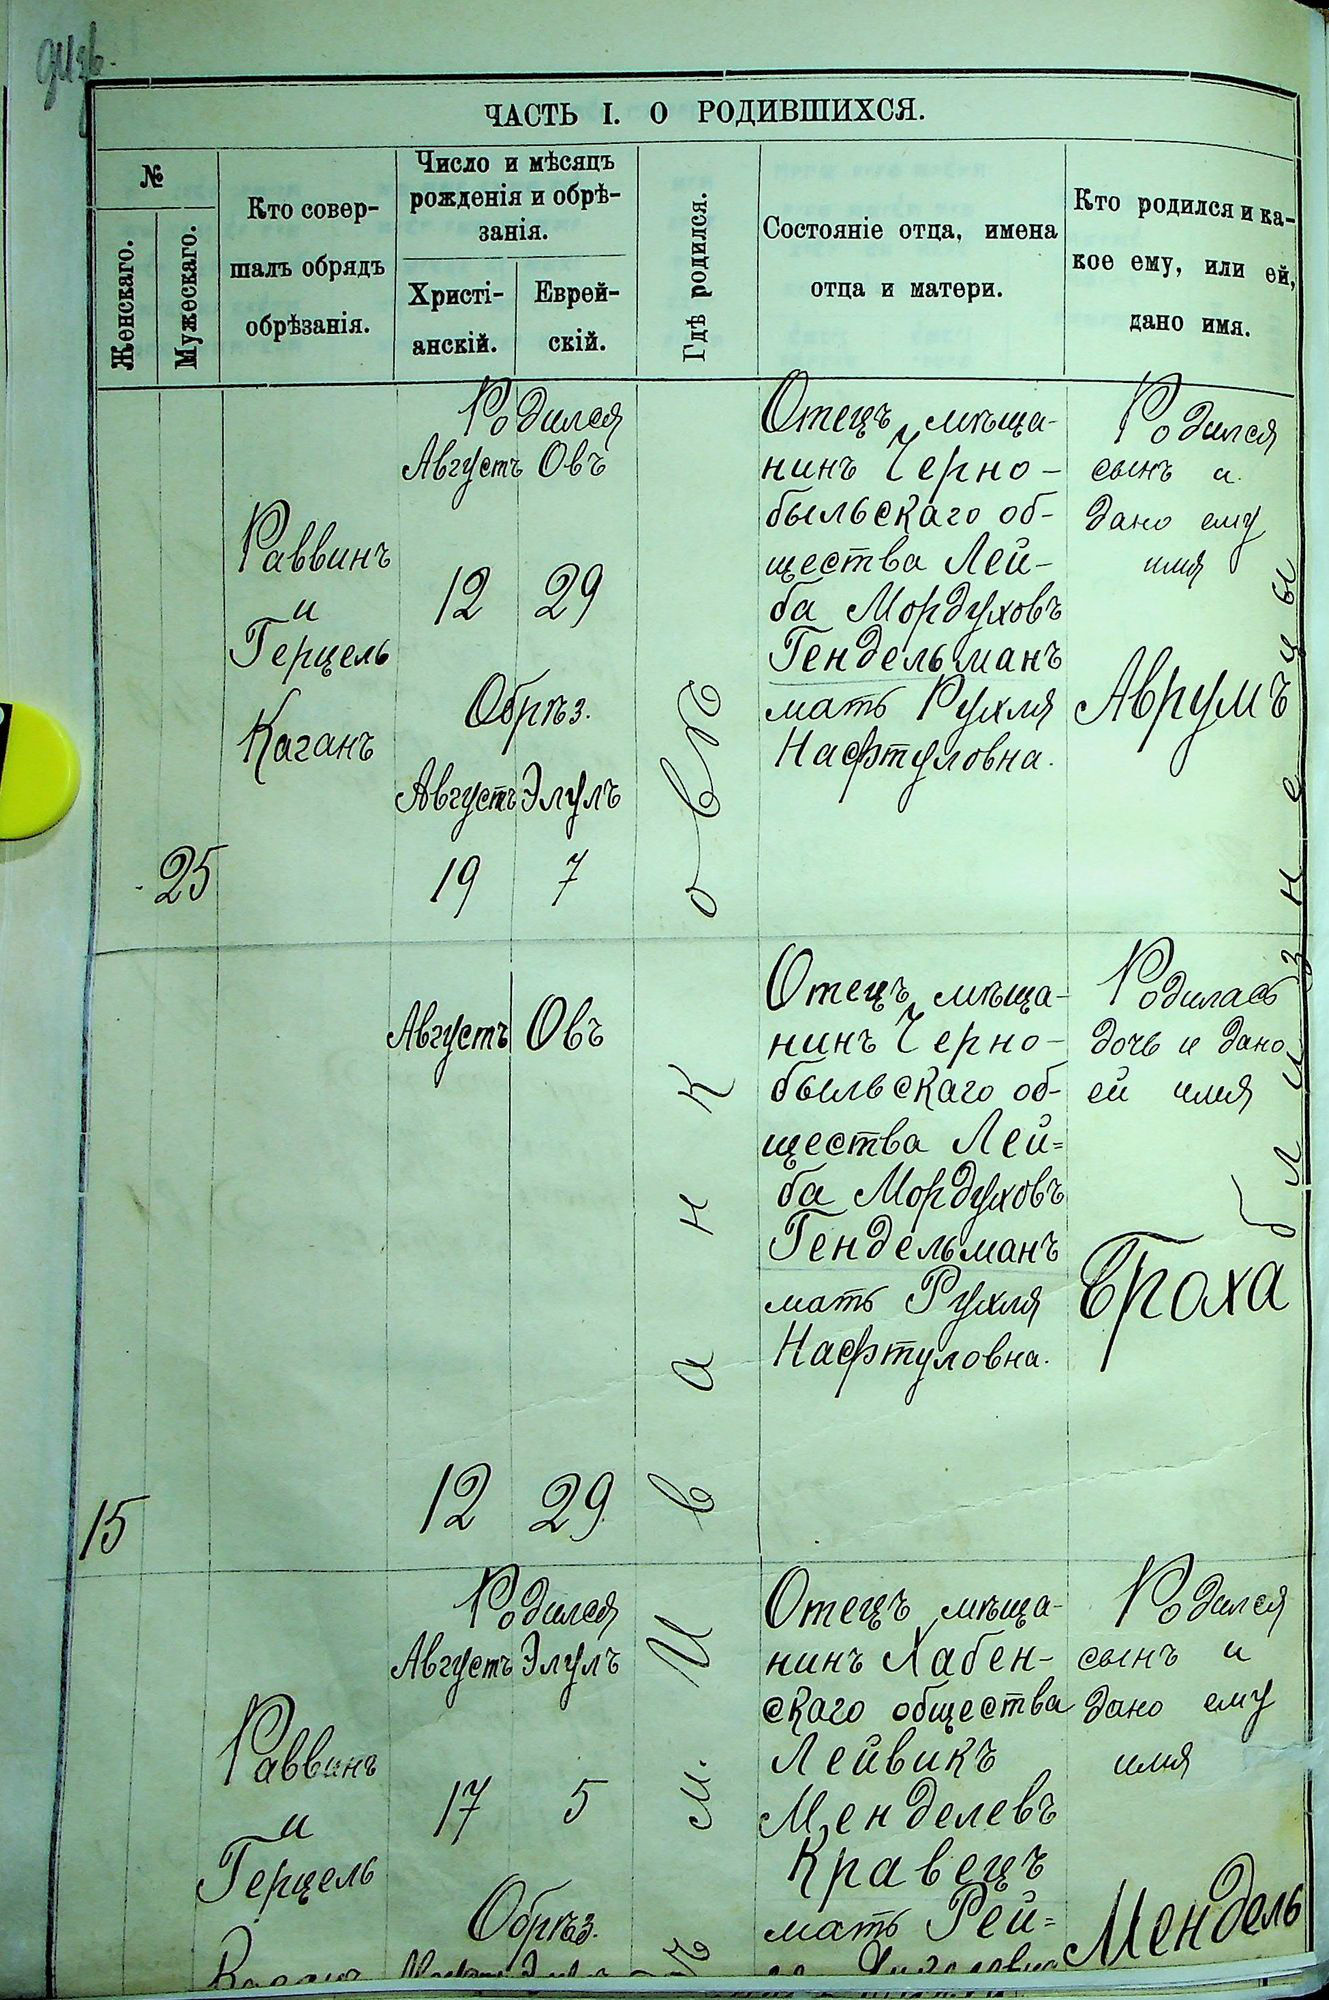 ЧАСТЬ I. О РОДИВШИХСЯ.
№
Женскаго.
Мужескаго.
Кто совер-
шалъ обрядъ
обрѣзанія.
Число и мѣсяцъ
рожденія и обрѣ-
занія.
Христі-
анскій.
Еврей-
скій.
Гдѣ родился.
Состояніе отца, имена
отца и матери.
Кто родился и ка-
кое ему, или ей,
дано имя.
25
Раввинъ
и
Герцель
Каганъ
Родился
Августъ Овъ
12 29
Обрѣз.
Августъ Элулъ
19 7
Отецъ мѣща-
нинъ Черно-
быльскаго об-
щества Лей-
ба Мордуховъ
Гендельманъ
мать Рухля
Нафтуловна.
Родился
сынъ и
дано ему
имя
Аврумъ
15
Августъ Овъ
12 29
Отецъ мѣща-
нинъ Черно-
быльскаго об-
щества Лей=
ба Мордуховъ
Гендельманъ
мать Рухля
Нафтуловна.
Родилась
дочь и дано
ей имя
Броха
близнецы
Раввинъ
и
Герцель
Родился
Августъ Элулъ
17 5
Обрѣз.
м. Иванковъ
Отецъ мѣща-
нинъ Хабен-
скаго общества
Лейвикъ
Менделевъ
Кравецъ
мать Рей=
Родился
сынъ и
дано ему
имя
Мендель